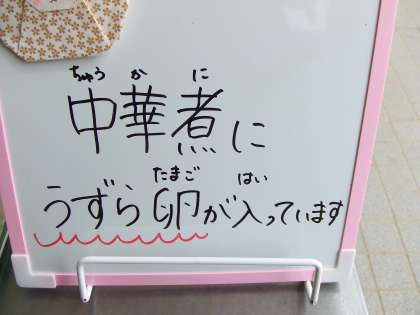 ちゅうかに
中華煮に
たまご はい
うずら卵が入っています